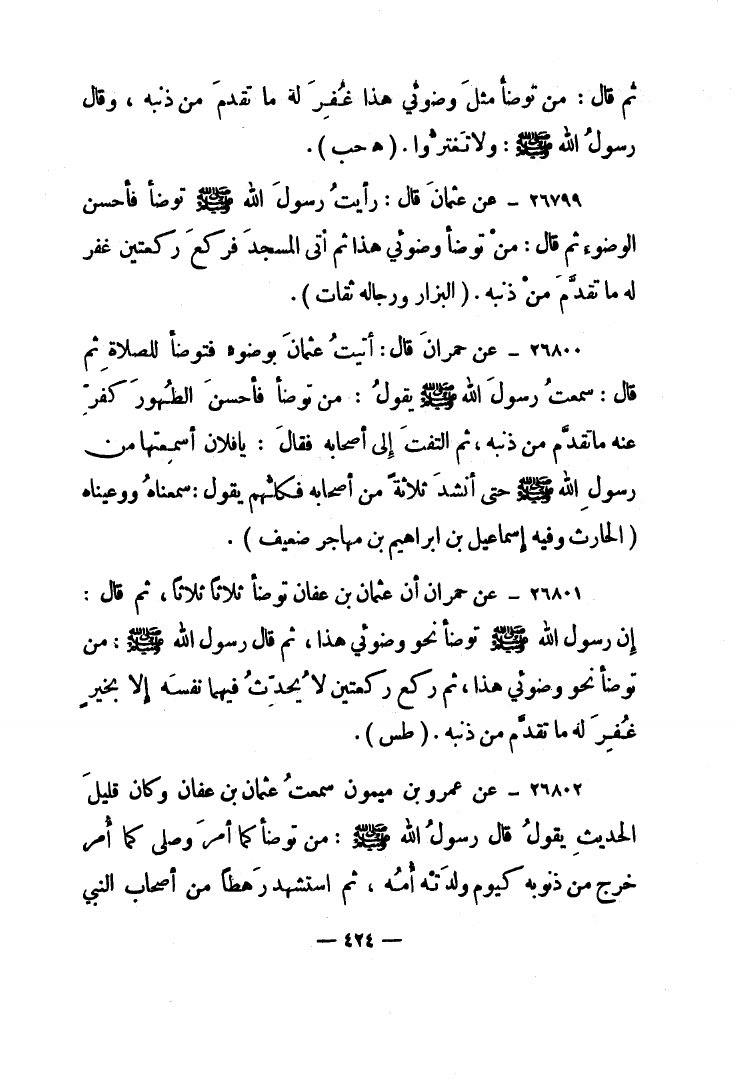 ثم قال : من توضأ مثلَ وضوئي هذا غُفِرَ لهُ ما تقدمَ من ذنبه ، وقال
رسولُ الله ﷺ : ولا تَغترُّوا . ( ه حب ) .
٢٦٧٩٩ – عن عثمانَ قال : رأيتُ رسولَ الله ﷺ توضأ فأحسن
الوضوء ثم قال : منْ توضأ وضوئي هذا ثم أتى المسجدَ فركعَ ركعتين غفر
له ما تقدَّمَ منْ ذنبه . ( البزار ورجاله ثقات ) .
٢٦٨٠٠ – عن حمرانَ قال : أتيتُ عثمانَ بوضوء فتوضأ للصلاةِ ثم
قال : سمعتُ رسولَ الله ﷺ يقولُ : من توضأ فأحسنَ الطُهورَ كفرَّ
عنه ماتقدَّم من ذنبه ، ثم التفتَ إلى أصحابه فقالَ : يافلان أسمِعتَها من
رسولِ الله ﷺ حتى أنشدَ ثلاثةً من أصحابه فكلُّهم يقول : سمعناهُ ووعيناه
( الحارث وفيه إسماعيل بن ابراهيم بن مهاجر ضعيف ) .
٢٦٨٠١ – عن حمران أن عثمان بن عفان توضأ ثلاثاً ثلاثاً ، ثم قال :
إن رسول الله ﷺ توضأ نحو وضوئي هذا ، ثم قال رسول الله ﷺ : من
توضأ نحو وضوئي هذا ، ثم ركع ركعتين لا يُحدِّثُ فيهما نفسَه إلا بخيرٍ
غُفِرَ له ما تقدَّم من ذنبه . ( طس ) .
٢٦٨٠٢ – عن عمرو بن ميمون سمعتُ عثمان بن عفان وكان قليلَ
الحديثِ يقولُ قال رسولُ الله ﷺ : من توضأ كما أمرَ وصلى كما أُمر
خرج من ذنوبه كيوم ولدَته أُمُه ، ثم استشهد رَهطاً من أصحاب النبي
— ٤٢٤ —